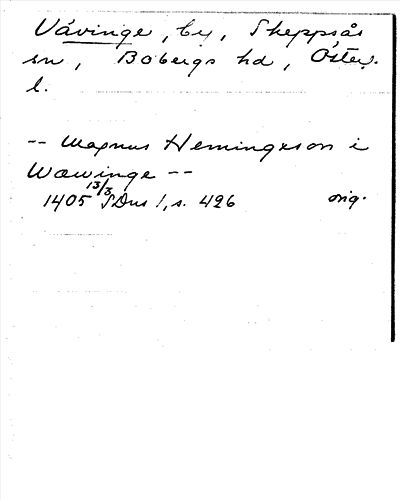 Vävinge, by, Skeppsås
sn, Bobergs hd, Österg.
l.
-- Magnus Hemingxson i
Wæwinge --
1405 13/3 SDns 1, s. 426 orig.